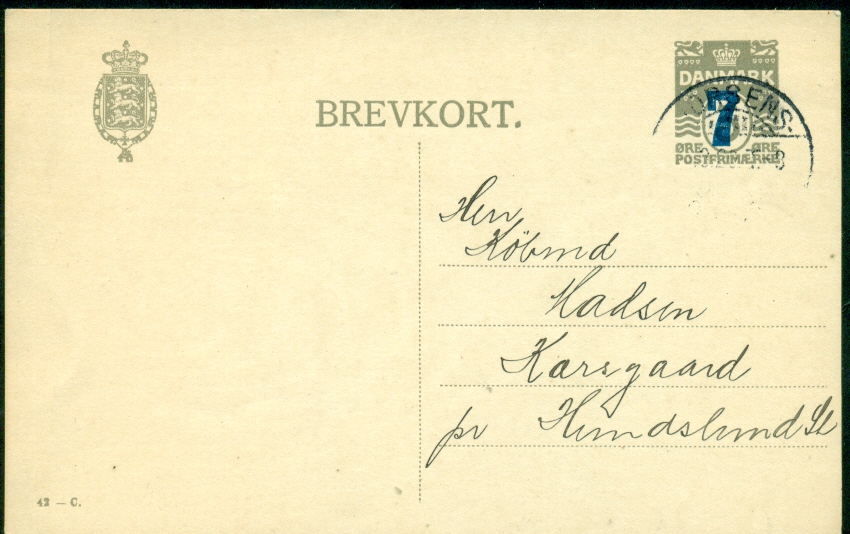 BREVKORT.
DANMARK
7
ØRE ØRE
POSTFRIMÆRKE
Herr
Købmd
Madsen
Karsgaard
pr Hundslund St
42 – C.